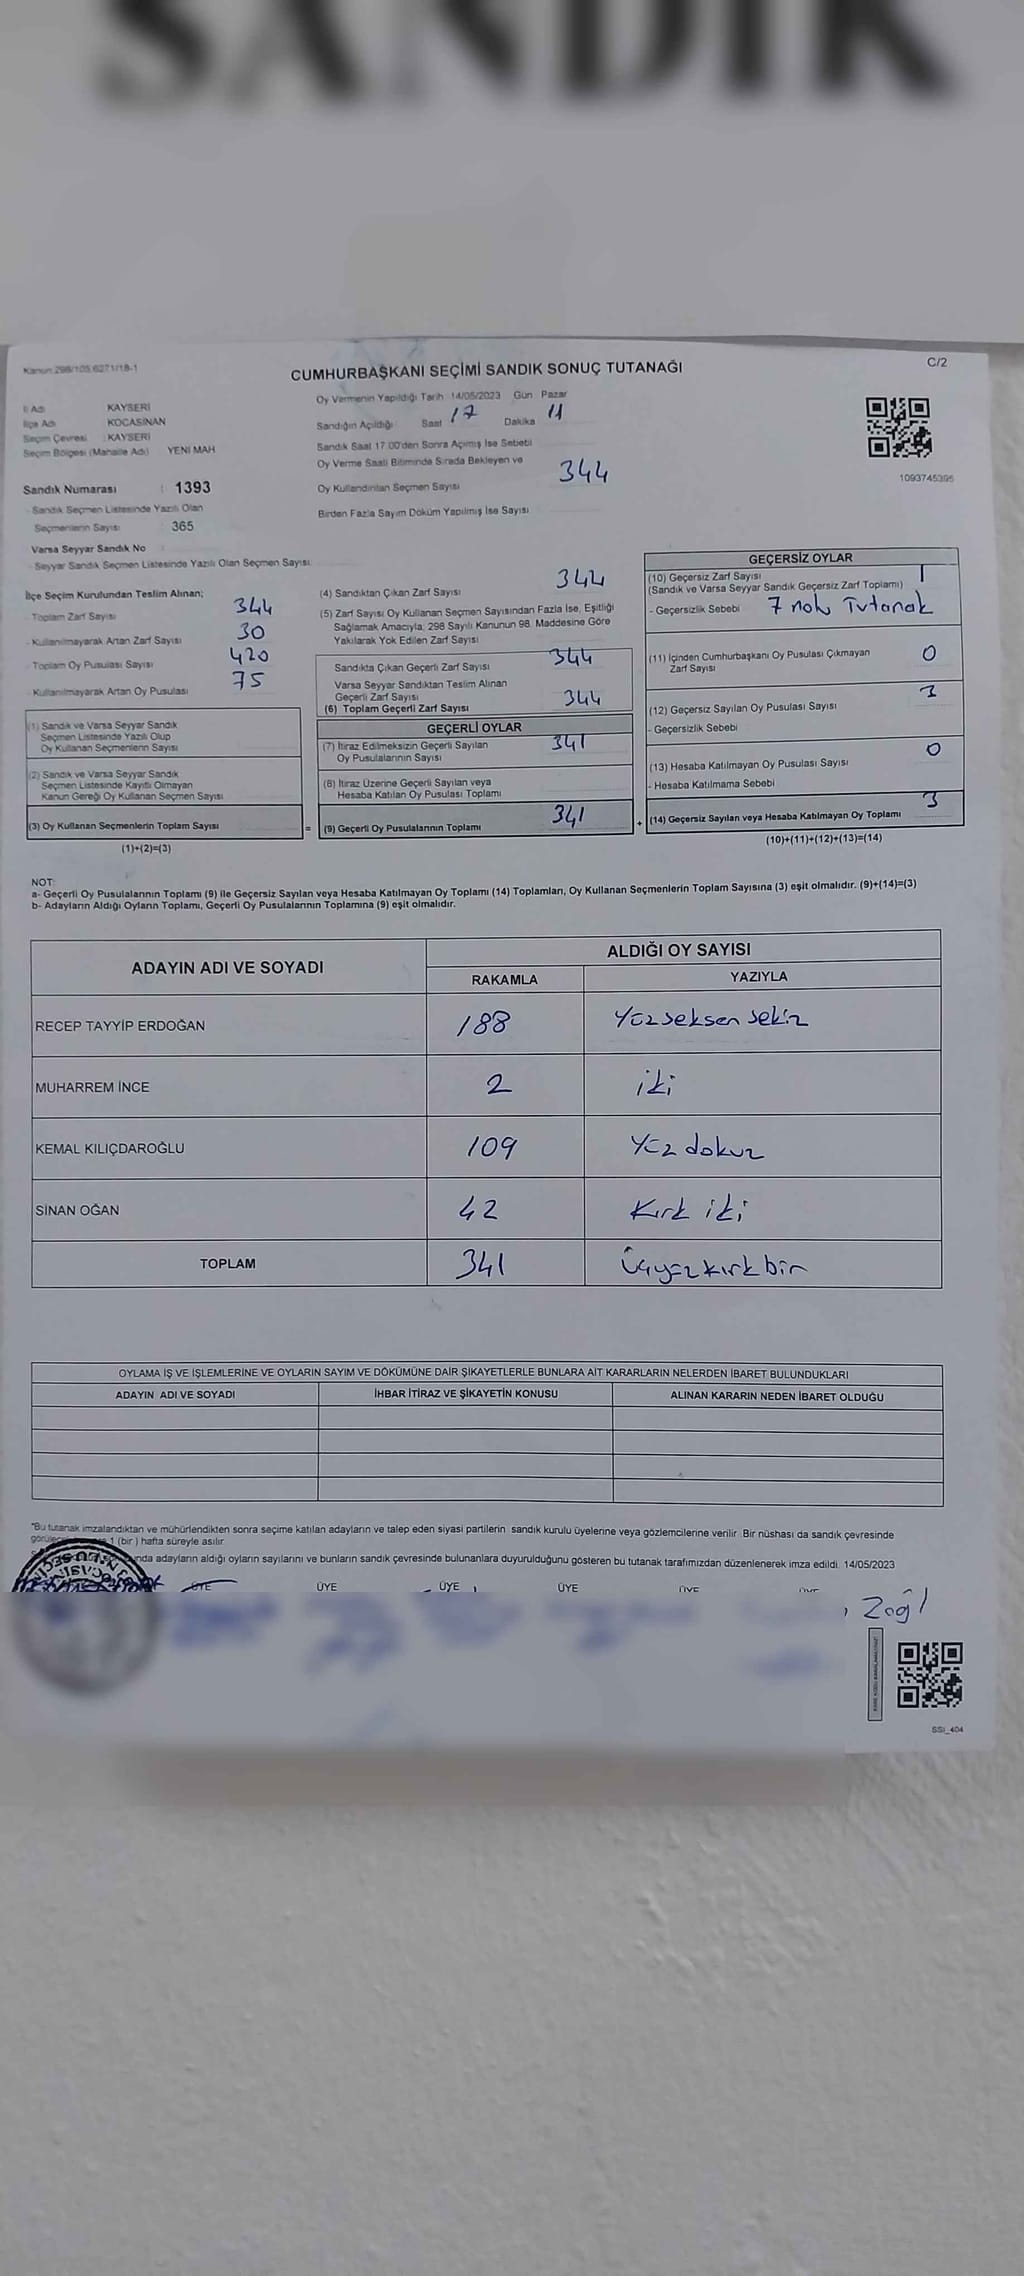 SANDIK
Kanun 298/105,6271/18-1
C/2
CUMHURBAŞKANI SEÇİMİ SANDIK SONUÇ TUTANAĞI
İl Adı KAYSERİ
İlçe Adı KOCASİNAN
Seçim Çevresi : KAYSERİ
Seçim Bölgesi (Mahalle Adı) YENİ MAH
Sandık Numarası : 1393
- Sandık Seçmen Listesinde Yazılı Olan
Seçmenlerin Sayısı : 365
Varsa Seyyar Sandık No
- Seyyar Sandık Seçmen Listesinde Yazılı Olan Seçmen Sayısı:
Oy Vermenin Yapıldığı Tarih 14/05/2023 Gün Pazar
Sandığın Açıldığı Saat 17 Dakika 11
Sandık Saat 17:00'den Sonra Açımış İse Sebebi
Oy Verme Saati Bitiminde Sırada Bekleyen ve
Oy Kullandırılan Seçmen Sayısı 344
Birden Fazla Sayım Döküm Yapılmış İse Sayısı
1093745395
İlçe Seçim Kurulundan Teslim Alınan;
- Toplam Zarf Sayısı 344
- Kullanılmayarak Artan Zarf Sayısı 30
- Toplam Oy Pusulası Sayısı 420
- Kullanılmayarak Artan Oy Pusulası 75
(1) Sandık ve Varsa Seyyar Sandık
Seçmen Listesinde Yazılı Olup
Oy Kullanan Seçmenlerin Sayısı
(2) Sandık ve Varsa Seyyar Sandık
Seçmen Listesinde Kayıtlı Olmayan
Kanun Gereği Oy Kullanan Seçmen Sayısı
(3) Oy Kullanan Seçmenlerin Toplam Sayısı =
(1)+(2)=(3)
(4) Sandıktan Çıkan Zarf Sayısı 344
(5) Zarf Sayısı Oy Kullanan Seçmen Sayısından Fazla İse, Eşitliği
Sağlamak Amacıyla, 298 Sayılı Kanunun 98. Maddesine Göre
Yakılarak Yok Edilen Zarf Sayısı
Sandıkta Çıkan Geçerli Zarf Sayısı 344
Varsa Seyyar Sandıktan Teslim Alınan
Geçerli Zarf Sayısı
(6) Toplam Geçerli Zarf Sayısı 344
GEÇERLİ OYLAR
(7) İtiraz Edilmeksizin Geçerli Sayılan 341
Oy Pusulalarının Sayısı
(8) İtiraz Üzerine Geçerli Sayılan veya
Hesaba Katılan Oy Pusulası Toplamı
(9) Geçerli Oy Pusulalarının Toplamı 341 +
GEÇERSİZ OYLAR
(10) Geçersiz Zarf Sayısı 1
(Sandık ve Varsa Seyyar Sandık Geçersiz Zarf Toplamı)
- Geçersizlik Sebebi 7 nolu Tutanak
(11) İçinden Cumhurbaşkanı Oy Pusulası Çıkmayan 0
Zarf Sayısı
(12) Geçersiz Sayılan Oy Pusulası Sayısı 3
- Geçersizlik Sebebi
(13) Hesaba Katılmayan Oy Pusulası Sayısı 0
- Hesaba Katılmama Sebebi
(14) Geçersiz Sayılan veya Hesaba Katılmayan Oy Toplamı 3
(10)+(11)+(12)+(13)=(14)
NOT:
a- Geçerli Oy Pusulalarının Toplamı (9) ile Geçersiz Sayılan veya Hesaba Katılmayan Oy Toplamı (14) Toplamları, Oy Kullanan Seçmenlerin Toplam Sayısına (3) eşit olmalıdır. (9)+(14)=(3)
b- Adayların Aldığı Oyların Toplamı, Geçerli Oy Pusulalarının Toplamına (9) eşit olmalıdır.
ADAYIN ADI VE SOYADI ALDIĞI OY SAYISI
RAKAMLA YAZIYLA
RECEP TAYYİP ERDOĞAN 188 Yüzseksen sekiz
MUHARREM İNCE 2 iki
KEMAL KILIÇDAROĞLU 109 Yüz dokuz
SİNAN OĞAN 42 Kırk iki
TOPLAM 341 Üçyüzkırkbir
OYLAMA İŞ VE İŞLEMLERİNE VE OYLARIN SAYIM VE DÖKÜMÜNE DAİR ŞİKAYETLERLE BUNLARA AİT KARARLARIN NELERDEN İBARET BULUNDUKLARI
ADAYIN ADI VE SOYADI İHBAR İTİRAZ VE ŞİKAYETİN KONUSU ALINAN KARARIN NEDEN İBARET OLDUĞU
"Bu tutanak imzalandıktan ve mühürlendikten sonra seçime katılan adayların ve talep eden siyasi partilerin sandık kurulu üyelerine veya gözlemcilerine verilir. Bir nüshası da sandık çevresinde
1 (bir) hafta süreyle asılır.
adayların aldığı oyların sayılarını ve bunların sandık çevresinde bulunanlara duyurulduğunu gösteren bu tutanak tarafımızdan düzenlenerek imza edildi. 14/05/2023
ÜYE ÜYE ÜYE ÜYE ÜYE
SSİ_404